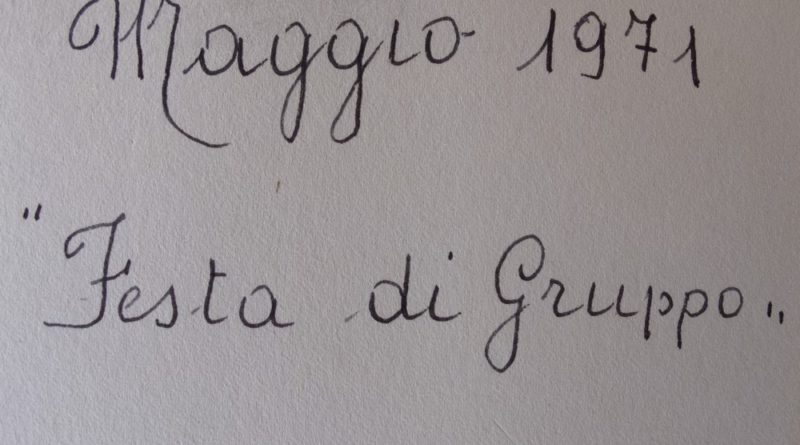 Maggio 1971
"Festa di Gruppo"